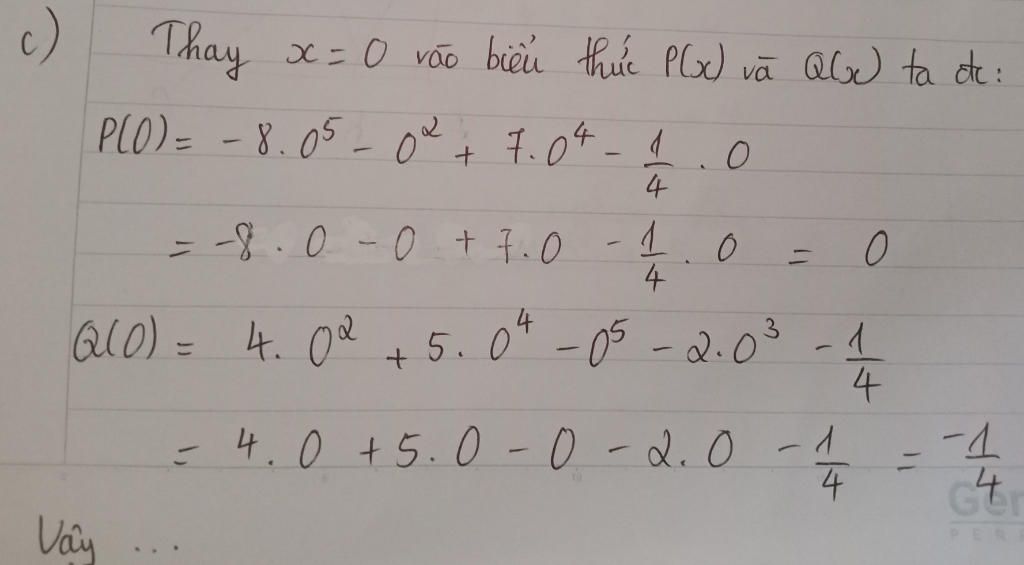 c) Thay x = 0 vào biểu thức P(x) và Q(x) ta đc:
P(0) = -8.0⁵ - 0² + 7.0⁴ - 1/4 . 0
= -8 . 0 - 0 + 7.0 - 1/4 . 0 = 0
Q(0) = 4. 0² + 5. 0⁴ - 0⁵ - 2.0³ - 1/4
= 4.0 + 5.0 - 0 - 2.0 - 1/4 = -1/4
Vậy ...